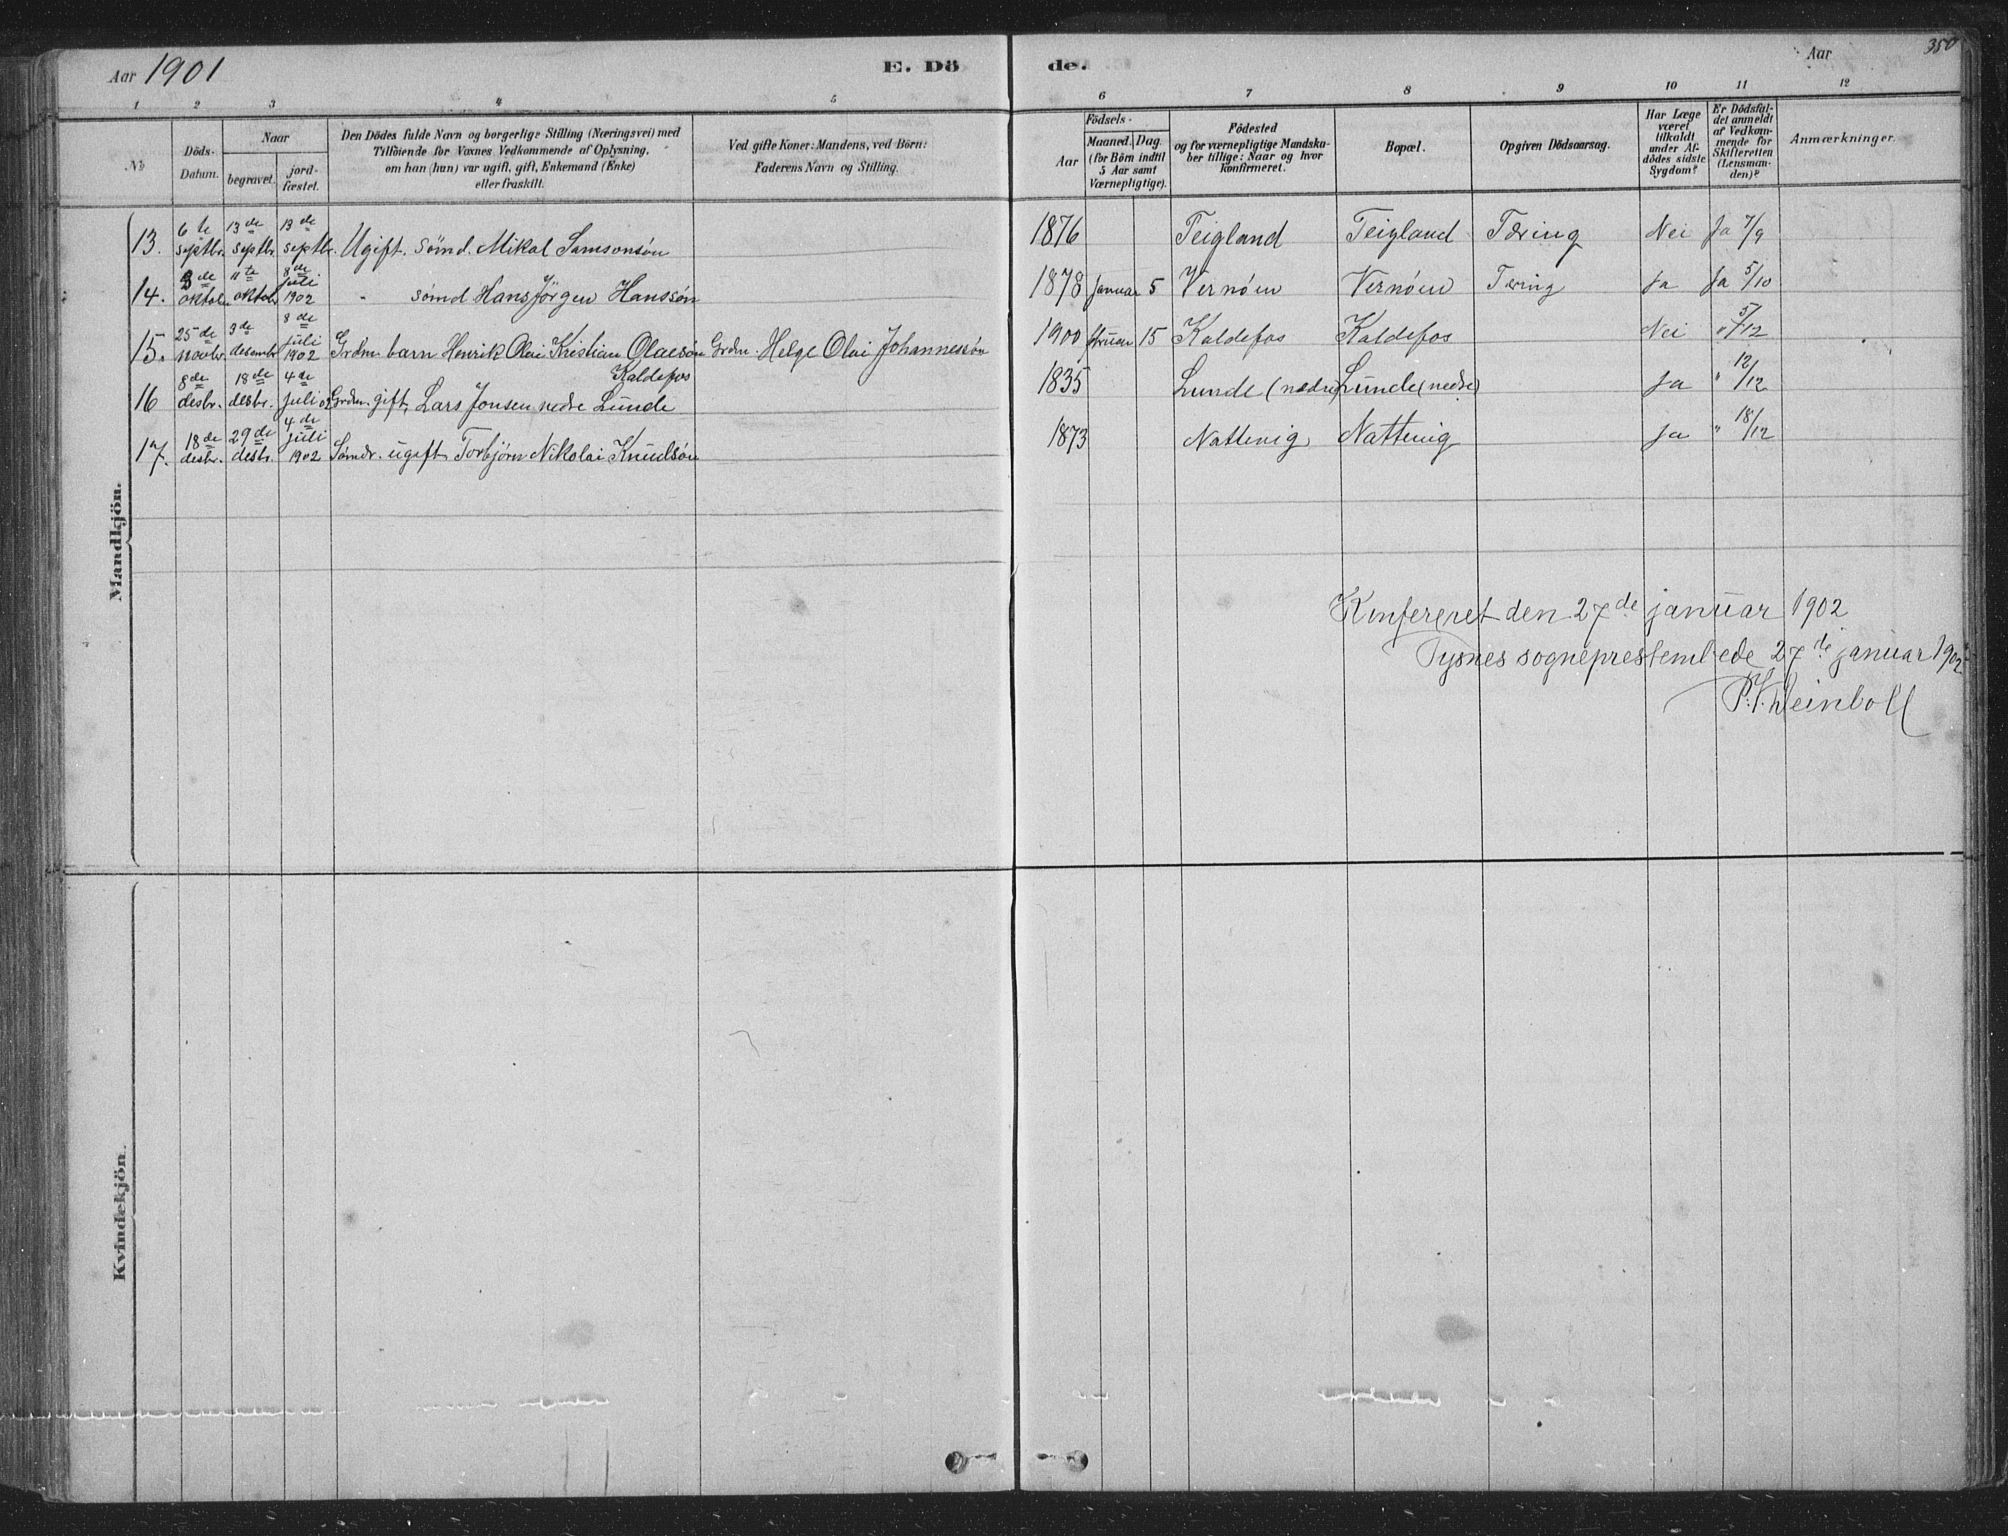 Aar 1901 E. Dö
de. Aar 350
1 2 3 4 5 6 7 8 9 10 11 12
No Döds-Datum. Naar begravet. jord-fæstet.
Den Dödes fulde Navn og borgerlige Stilling (Næringsvei) med
Tilföiende for Voxnes Vedkommende af Oplysning,
om han (hun) var ugift, gift, Enkemand (Enke)
eller fraskilt.
Ved gifte Koner: Mandens, ved Börn:
Faderens Navn og Stilling.
Födsels-
Aar Maaned. Dag.
(for Börn indtil
5 Aar samt
Værnepligtige).
Födested
og for værnepligtige Mandska-
ber tillige: Naar og hvor
Konfirmeret.
Bopæl.
Opgiven Dödsaarsag.
Har Læge
været
tilkaldt
under Af-
dödes sidste
Sygdom?
Er Dödsfal-
det anmeldt
af Vedkom-
mende for
Skifteretten
(Lensman-
den)?
Anmærkninger.
Mandkjön.
13. 6te septbr. 13de septbr. 13de septbr. Ugift. sömd. Mikal Samsonsön 1876 Teigland Teigland Tæring Nei Ja 7/9
14. 3de oktob. 11te oktob. 8de juli 1902 " sömd Hans Jörgen Hanssön 1878 Januar 5 Vernöen Vernöen Tæring Ja Ja 5/10
15. 25de novbr. 3de desembr 8de juli 1902 Grdm. barn Henrik Olai Kristian Olaesön Kaldefos Grdm. Helge Olai Johannessön 1900 15 Kaldefos Kaldefos Nei " 5/12
16 8de desbr. 18de desbr. 4de juli 02 Grdm. gift, Lars Jonsen nedre Lunde 1835 Lunde (nedre) Lunde (nedre) Ja " 12/12
17. 18de desbr. 29de desbr. 4de juli 1902 Sömdr. ugift Torbjörn Nikolai Knudsön 1873 Nattevig Nattevig Ja " 18/12
Konfereret den 27de januar 1902
Tysnes sogneprestembede 27de januar 1902
P. V. Deinboll
Kvindekjön.